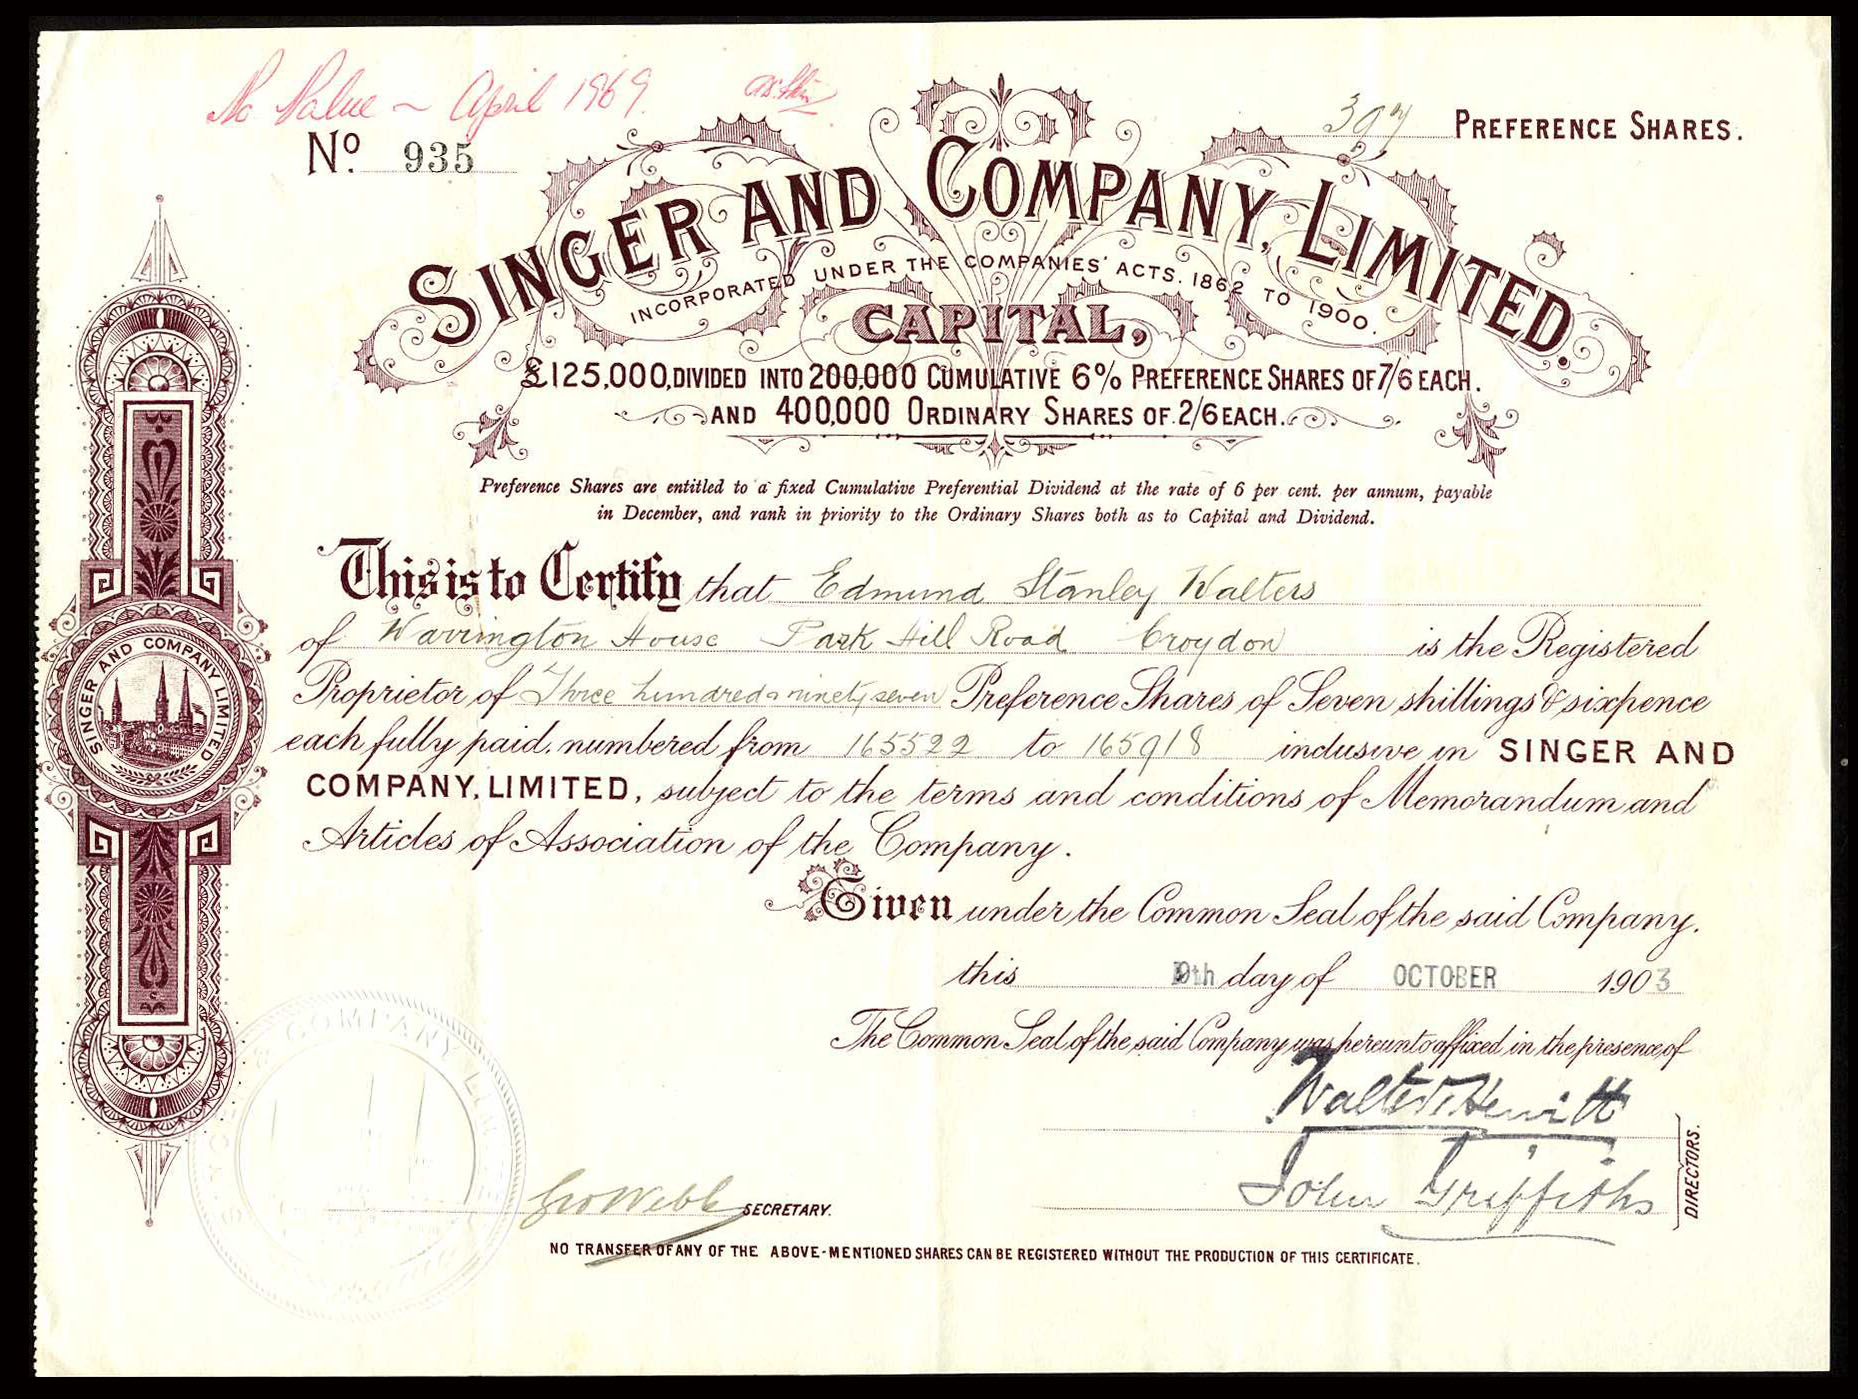 No Value ~ April 1969.
No. 935
397 PREFERENCE SHARES.
SINGER AND COMPANY, LIMITED.
INCORPORATED UNDER THE COMPANIES' ACTS. 1862 TO 1900.
CAPITAL,
£125,000, DIVIDED INTO 200,000 CUMULATIVE 6% PREFERENCE SHARES OF 7/6 EACH.
AND 400,000 ORDINARY SHARES OF 2/6 EACH.
Preference Shares are entitled to a fixed Cumulative Preferential Dividend at the rate of 6 per cent. per annum, payable
in December, and rank in priority to the Ordinary Shares both as to Capital and Dividend.
This is to Certify that Edmund Stanley Walters
of Warrington House Park Hill Road Croydon is the Registered
Proprietor of Three hundred & ninety seven Preference Shares of Seven shillings & sixpence
each fully paid, numbered from 165522 to 165918 inclusive in SINGER AND
COMPANY, LIMITED, subject to the terms and conditions of Memorandum and
Articles of Association of the Company.
SINGER AND COMPANY LIMITED
Given under the Common Seal of the said Company.
this day of OCTOBER 1903
The Common Seal of the said Company was hereunto affixed in the presence of
Walter Hewitt
John Griffiths
DIRECTORS.
& COMPANY LIMITED
Geo Webb SECRETARY.
NO TRANSFER OF ANY OF THE ABOVE-MENTIONED SHARES CAN BE REGISTERED WITHOUT THE PRODUCTION OF THIS CERTIFICATE.